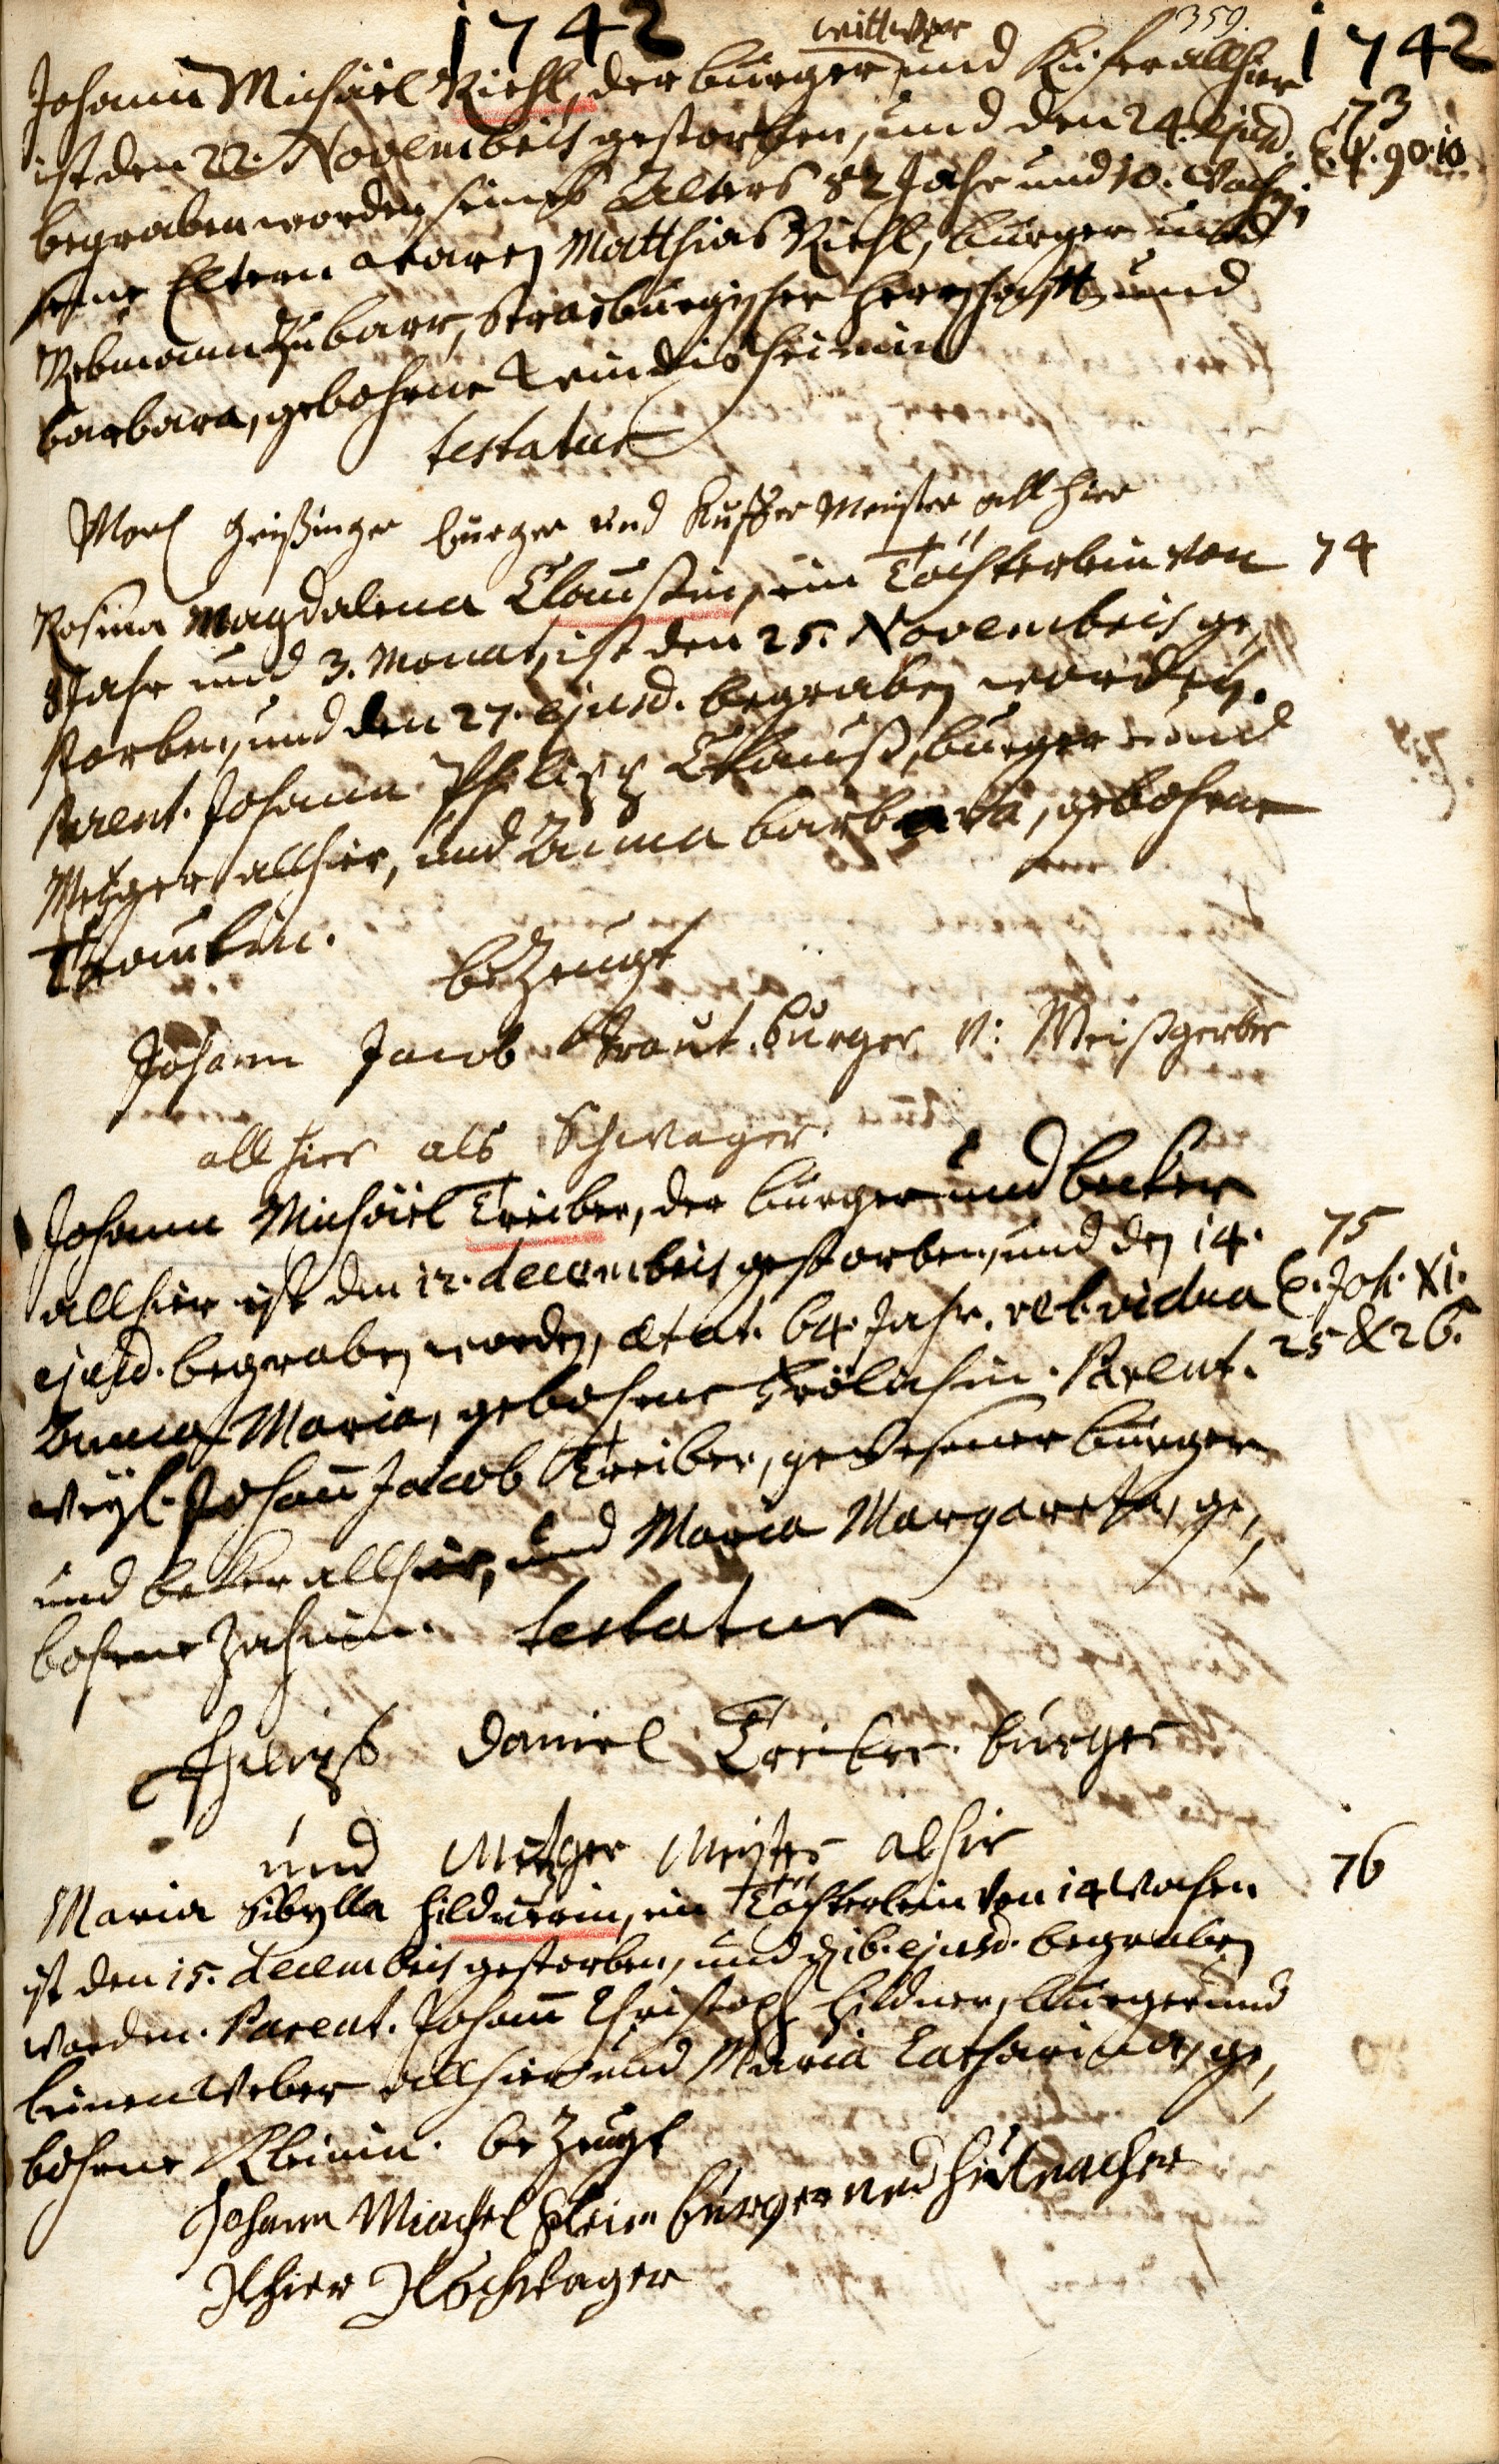 1742 359. 1742
wittwer
Johann Michäel Riehl, der burger und Kiefer allhier
73
ist den 22. Novembris gestorben, und den 24. ejusd.
Ps. 90. 10.
begraben worden, seines Alters 82 Jahr und 10. wochen;
seine Eltern waren Matthias Riehl, burger und
Rebmann zu barr, Strasburgischer Herrschafft, und
barbara, gebohrne
testatur
burger und Kuffer Meister allhier
Rosina Magdalena Claussin, ein Töchterlein von
74
8 Jahr und 3. Monat, ist den 25. Novembris ge,
storben, und den 27. ejusd. begraben worden.
Parent. Johann Philipp Clauss, burger und
Metzger allhier, und Anna barbara, gebohrne
bezeugt
Johann Jacob Traut. burger v: Weißgerber
allhier als Schwager.
Johann Michäel Treiber, der burger und becker
75
allhier ist den 12. decembris gestorben, und den 14.
ejusd. begraben worden, ætat. 64. Jahr. rel. vidua
E. Joh. XI.
25 & 26.
Anna Maria, gebohrne Frölichin. Parent.
weyl. Johann Jacob Treiber, gewesener burger
und becker allhier, und Maria Margaretha, ge,
bohrne Zahnin. testatur
Daniel Treiber. burger
und Metzger Meister alhir
76
Maria Sibylla Hildnerin, ein Töchterlein von 14 Wochen
ist den 15. decembris gestorben, und d. 16. ejusd. begraben
worden. Parent. Johann Christoph Hildner, burger und
LeinenWeber allhier und Maria Catharina, ge,
bohrne Kleinin. bezeugt
Johann Miachel Klein burger und Hutmacher